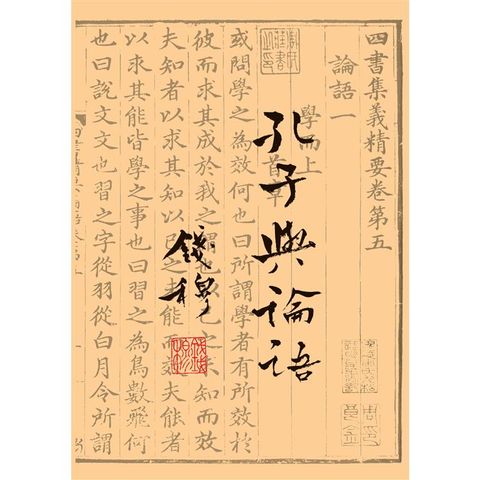 四書集義精要卷第五
論語一
學而上
孔子與論語
首章
或問學之為效何也曰所謂學者有所效於
錢穆
彼而求其成於我之 也以己之 知而效
夫知者以求其知以己之 能而效夫能者
以求其能皆學之事也曰習之為鳥數飛何
也曰說文文也習之字從羽從白月令所謂